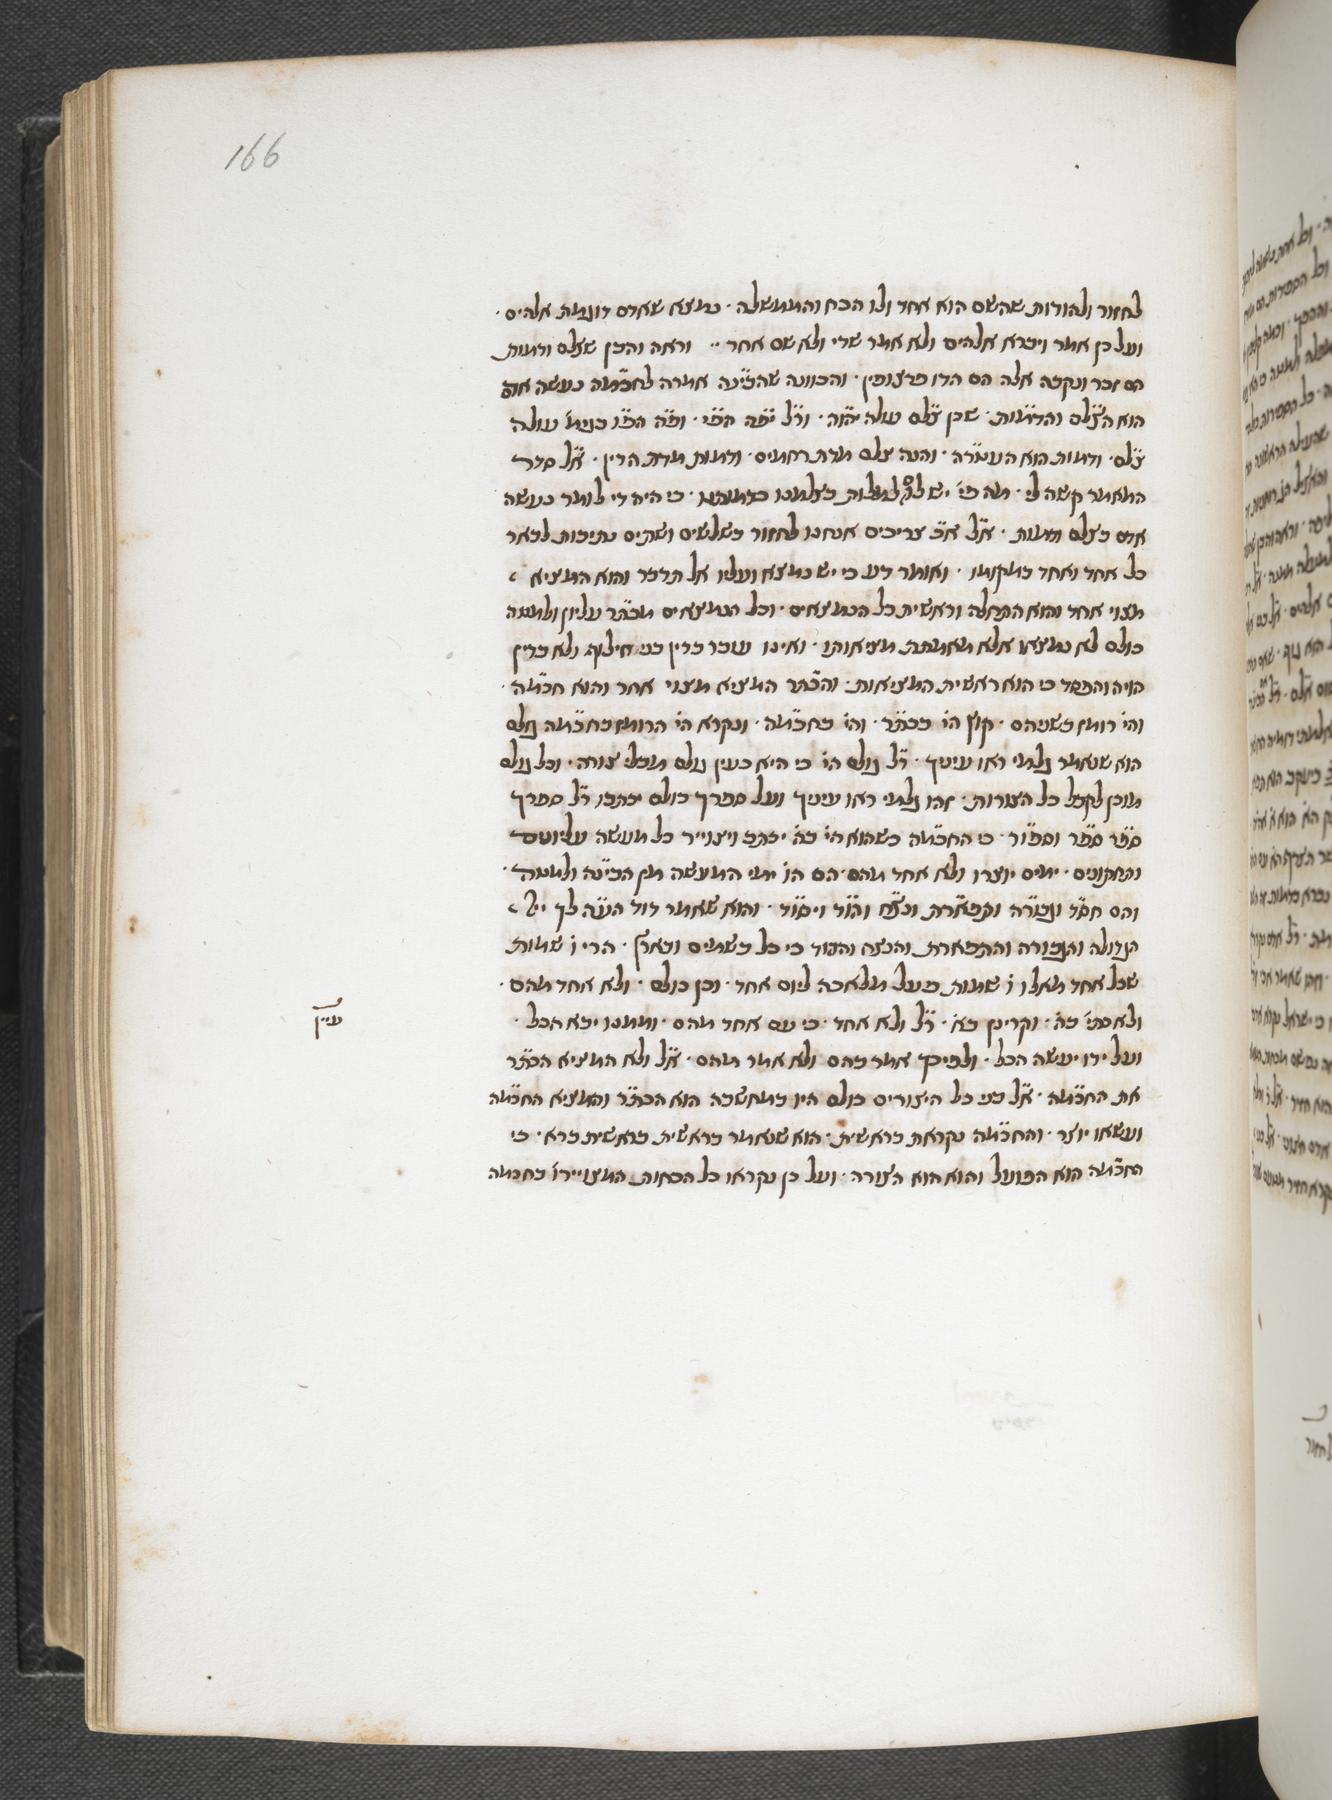 166
לחזור ולהודות שהשם הוא אחד ולו הכח והממשלה · נמצא שאדם דוגמת אלהים ·
ועל כן אמר ויברא אלהים ולא אמר שדי ולא שם אחר ·· וראה והבן שצלם ודמות
הם זכר ונקבה אלה הם הדו פרצופין · והכוונה שהבינה אמרה לחכמה נעשה אדם
הוא הצלם והדמות · שכן צלם עולה · ור״ל · עולה
צלם · ודמות הוא העטרה · והנה צלם מדת רחמים · ודמות מדת הדין · א״ל סדר
המאמר קשה לי · מה כי יש בצלמנו כדמותנו · כי היה די לומר נעשה
אדם בצלם ודמות · א״ל א״כ צריכים אנחנו לחזור בשלשים ושתים נתיבות לבאר
כל אחד ואחד במקומו · ואומר דע כי יש נמצא ועליו אל תדבר והוא המציא
מצוי אחד והוא התחלה וראשית כל הנמצאים · וכל הנמצאים מכתר עליון ולמטה
כולם לא נמצאו אלא מאמתת מציאותו · ואינו עובר בדין בני חילוף ולא בדין
הויה והפסד כי הוא ראשית המציאות · והכתר המציא מצוי אחר והוא חכמה ·
והי׳ רומז בשניהם · קוץ הי׳ בכתר · והי׳ בחכמה · ונקרא הי׳ הרומז בחכמה גולם
הוא שנאמר גלמי ראו עיניך · ר״ל גולם הי׳ כי היא כעין גולם מבלי צורה · וכל גולם
מוכן לקבל כל הצורות · זהו גלמי ראו עיניך ועל ספרך כולם יכתבו ר״ל ספרך
ספר ספר וספור · כי החכמה כשהוא הי׳ בה יכתב ויצוייר כל מעשה עליונים
ותחתונים · ימים יוצרו ולא אחד מהם · הם הו׳ ימי המעשה מן הבינה ולמטה ·
והם חסד וגבורה ותפארת ונצח והוד ויסוד · והוא שאמר דוד הע״ה לך יי׳
הגדולה והגבורה והתפארת והנצח וההוד כי כל בשמים ובארץ · הרי ו׳ שמות
שכל אחד מאלו ו׳ שמות פועל מלאכה ליום אחד · וכן כולם · ולא אחד מהם ·
ולא כתי׳ בה · וקרינן בא · ר״ל ולא אחד · כי עם אחד מהם · וממנו יבא הכל ·
ועל ידו יעשה הכל · ולפיכך אמר בהם ולא אמר מהם · א״ל ולא המציא הכתר
את החכמה · א״ל בני כל היצורים כולם היו במחשבה הוא הכתר והמציא החכמה
ועשאו יוצר · והחכמה נקראת בראשית · הוא שנאמר בראשית בראשית ברא · כי
החכמה הוא הפועל והוא הוא הצורה · ועל כן נקראו כל הכחות המצויירו׳ בחכמה
עיין